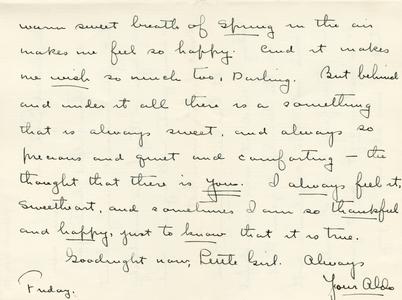 warm sweet breath of Spring in the air
makes me feel so happy. And it makes
me wish so much too, Darling. But behind
and under it all there is a something
that is always sweet, and always so
precious and quiet and comforting — the
thought that there is you. I always feel it,
Sweetheart, and sometimes I am so thankful
and happy, just to know that it is true.
Goodnight now, Little Girl. Always
Your Aldo
Friday.